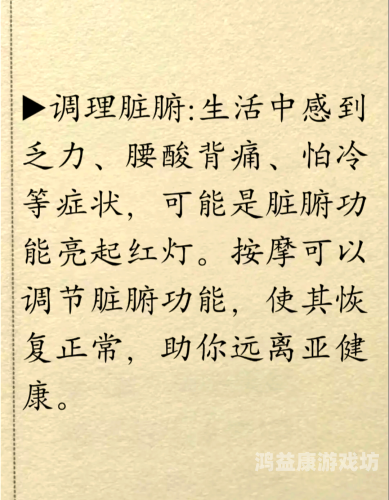 ▶调理脏腑:生活中感到
乏力、腰酸背痛、怕冷
等症状，可能是脏腑功
能亮起红灯。按摩可以
调节脏腑功能，使其恢
复正常，助你远离亚健
康。
鸿益康游戏坊